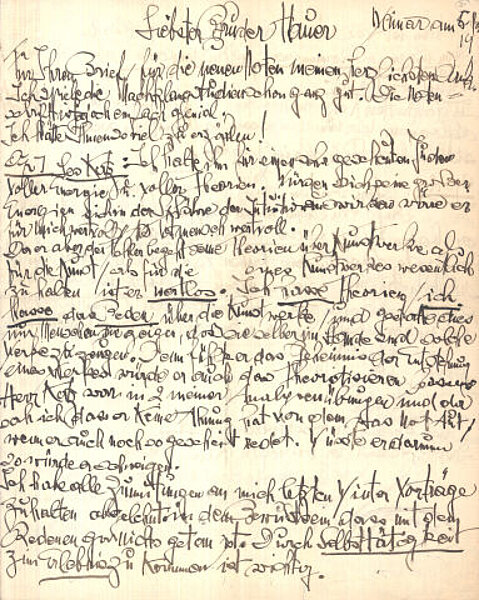 Liebster Bruder Hauer Weimar am 5.
19
Für Ihren Brief, für die neuen Noten meinen herzlichsten
Ich spiele die Nachklangstudien schon ganz gut. Die Noten=
einfach genial
Ich hätte Ihnen so viel zu erzählen!
Leo Katz: Ich halte ihn für einen sehr gescheuten Juden
voller Energie u. voller Theorien. Würden sich seine großen
Energien sich in der Sphäre der Intuition wäre er
für mich wertvoll. So ist er mensch wertvoll.
Da er aber der seine Theorien über Kunstwerke als
für die Kunst / als für die eines Kunstwerkes wesentlich
zu halten ist er wertlos. Ich hasse Theorien / ich
hasse das Reden über die Kunstwerke / und
nur Menschen die zeigen, dass sie selber im Stande sind solche
Werke zu zeugen. Denn das Geheimnis der Entstehung
eines Werkes würde er auch das Theoretisieren
Herr Katz war in 2 meiner Analysenübungen und da
sah ich dass er keine Ahnung hat von dem was not tut /
wenn er auch noch so gescheit redet. Wüsste er darum
so würde er schweigen.
Ich habe alle Zumutungen an mich letzten Winter Vorträge
zu halten abgelehnt in dem Bewusstsein, dass mit dem
Reden gar nichts getan ist. Durch Selbsttätigkeit
zum Erlebnis zu kommen ist wichtig.